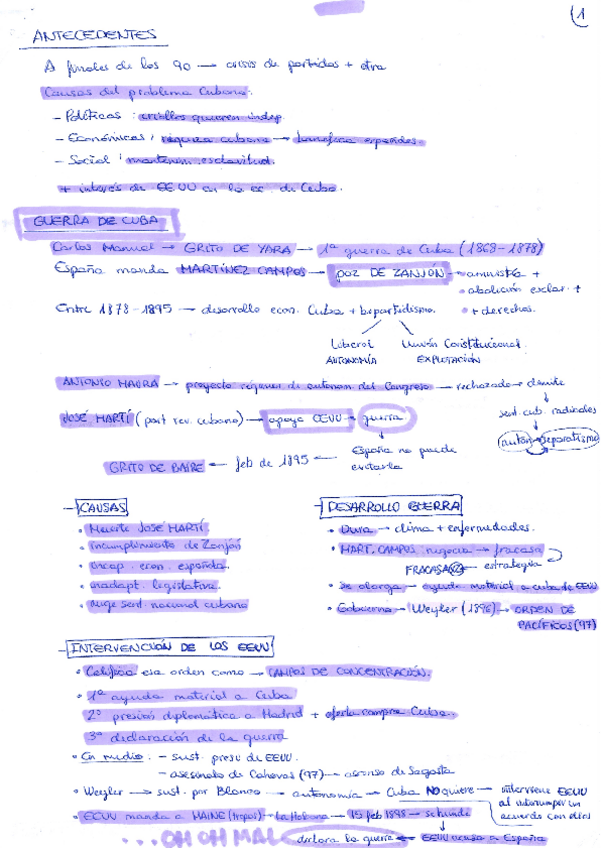 1
ANTECEDENTES
A finales de los 90 → crisis de partidos + otra
Causas del problema Cubano:
- Políticas: criollos quieren indep.
- Económicas: riqueza cubana → beneficia españoles.
- Social: mantenim. esclavitud.
+ interés de EEUU en la ec. de Cuba.
GUERRA DE CUBA
Carlos Manuel → GRITO DE YARA → 1ª guerra de Cuba (1868-1878)
España manda MARTÍNEZ CAMPOS → paz DE ZANJÓN → amnistía +
abolición esclav. +
Entre 1878-1895 → desarrollo econ. Cuba + bipartidismo. + derechos.
Liberal Unión Constitucional
AUTONOMÍA EXPLOTACIÓN
ANTONIO MAURA → proyecto régimen de autonom del Congreso → rechazado → dimite
sent. cub. radicales
JOSÉ MARTÍ (part rev. cubano) → apoya EEUU → guerra
autón → separatismo
GRITO DE BAIRE ← feb de 1895 ← España no puede
evitarla
- CAUSAS
• Muerte JOSÉ MARTÍ
• incumplimiento de Zanjón
• incap. econ. española
• inadapt. legislativa.
• auge sent. nacional cubano
- DESARROLLO GUERRA
• Dura → clima + enfermedades.
• MART. CAMPOS negocia → fracasa
FRACASA estrategia
• Se alarga → ayuda material a cuba de EEUU
• Gobierno → Weyler (1896) → ORDEN DE
PACÍFICOS (97)
- INTERVENCIÓN DE LOS EEUU
• Califica esa orden como → CAMPOS DE CONCENTRACIÓN.
• 1º ayuda material a Cuba
2º presión diplomática a Madrid + oferta compra Cuba.
3º declaración de la guerra
• En medio: - sust. presu de EEUU.
- asesinato de Cánovas (97) → ascenso de Sagasta
• Weyler → sust. por Blanco → autonomía → Cuba NO quiere → interviene EEUU
al interrumpir un
acuerdo con ellos
• EEUU manda a MAINE (tropas) → La Habana → 15 feb 1898 → se hunde
...OH OH MAL declara la guerra ← EEUU acusa a España